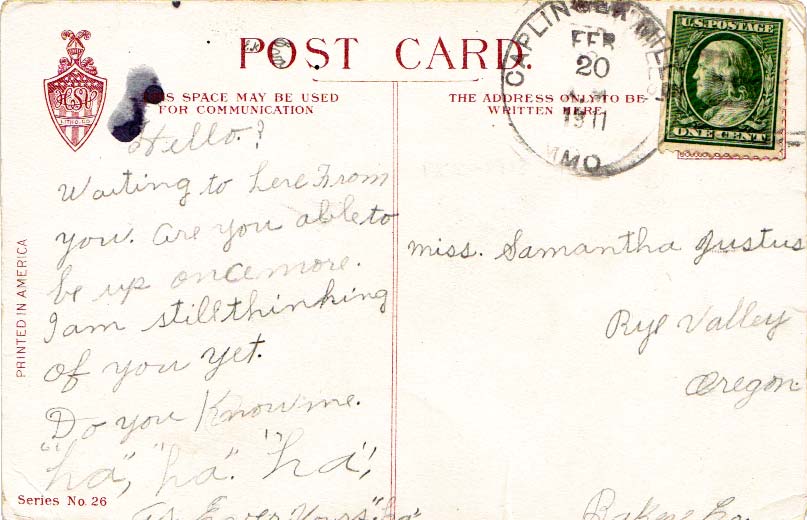 POST CARD.
THIS SPACE MAY BE USED
FOR COMMUNICATION
THE ADDRESS ONLY TO BE
WRITTEN HERE
CAPLINGER MILLS
FEB
20
1911
MO.
U.S. POSTAGE
ONE CENT
H S V
LITHO. CO.
PRINTED IN AMERICA
Hello?
Waiting to here From
you. are you able to
be up once more.
I am still thinking
of you yet.
Do you Know me.
"ha", "ha". "ha",
As Ever Yours
miss. Samantha Justus
Rye Valley
Oregon
Baker Co.
Series No. 26